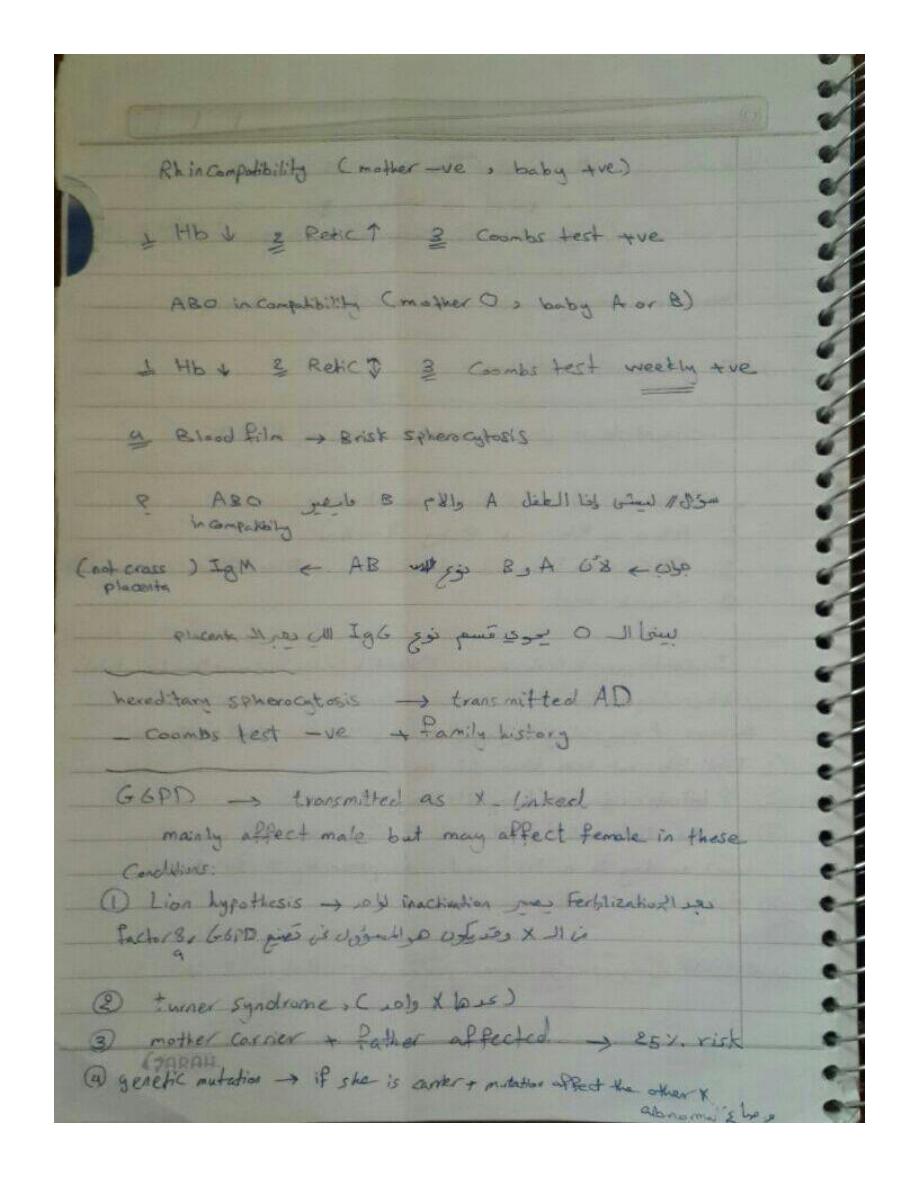 Rh incompatibility (mother -ve , baby +ve)
1 Hb ↓ 2 Retic ↑ 3 Coombs test +ve
ABO incompatibility (mother O , baby A or B)
1 Hb ↓ 2 Retic ↑ 3 Coombs test weekly +ve
4 Blood film → Brisk spherocytosis
سؤال // ليش إذا الطفل A والام B مايصير ABO incompatibility ؟
جواب ← لأن A و B نوع AB ← IgM (not cross placenta)
بينما الـ O يحوي قسم نوع IgG اللي يعبر الـ placenta
hereditary spherocytosis → transmitted AD
- Coombs test -ve + family history
G6PD → transmitted as X-linked
mainly affect male but may affect female in these
Conditions:
① Lion hypothesis → بعد الـ Fertilization يصير inactivation لواحد
من الـ X وقد يكون هو المسؤول عن تصنيع G6PD, factor 8, 9
② turner syndrome, (عدها X واحد)
③ mother carrier + father affected → 25% risk
SARAH
④ genetic mutation → if she is carrier + mutation affect the other X
abnormal